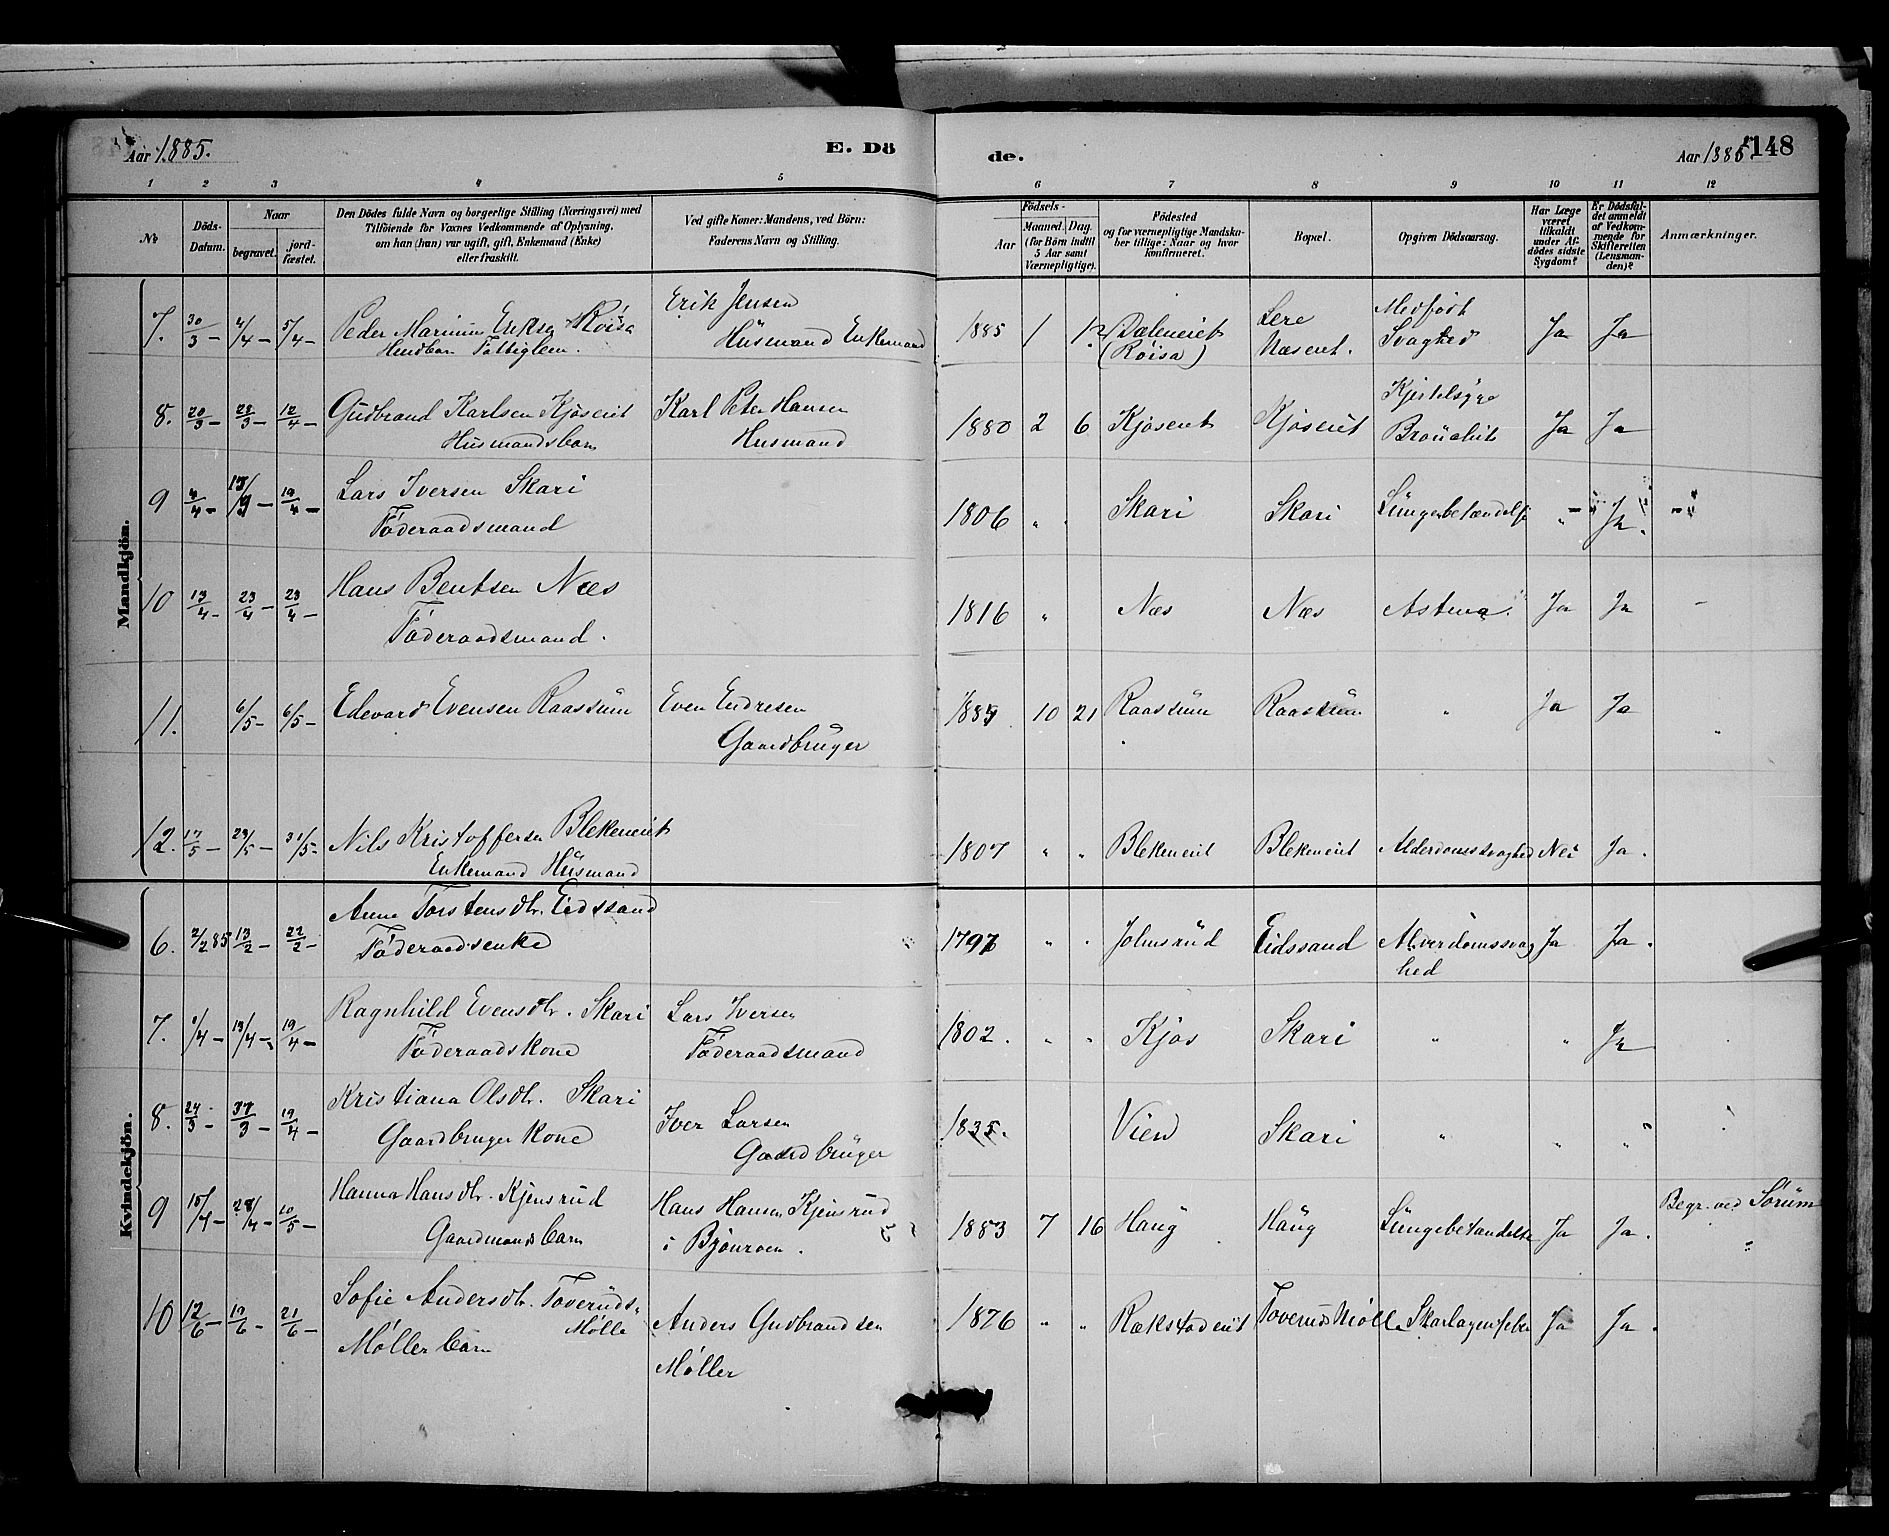 Aar 1885.
E. Dö
de.
Aar 1885.
148
1 2 3 4 5 6 7 8 9 10 11 12
No
Döds-Datum.
Naar
begravet.
jord-fæstet.
Den Dödes fulde Navn og borgerlige Stilling (Næringsvei) med
Tilföiende for Voxnes Vedkommende af Oplysning,
om han (hun) var ugift, gift, Enkemand (Enke)
eller fraskilt.
Ved gifte Koner: Mandens, ved Börn:
Faderens Navn og Stilling.
Födsels-
Aar
Maaned. Dag.
(for Börn indtil
5 Aar samt
Værnepligtige).
Födested
og for værnepligtige Mandska-
ber tillige: Naar og hvor
konfirmeret.
Bopæl.
Opgiven Dödsaarsag.
Har Læge
været
tilkaldt
under Af-
dödes sidste
Sygdom?
Er Dödsfal-
det anmeldt
af Vedkom-
mende for
Skifteretten
(Lensman-
den)?
Anmærkninger.
Mandkjön.
7. 30/3 – 4/4 – 5/4 – Peder Marinius Eriksen Röisa Erik Jensen 1885 1 12 Dæleneiet Lere Medfødt Ja Ja
Fattiglem. Husmand Enkemand (Röisa) Næseiet. Svaghed
8. 20/3 – 28/3 – 12/4 – Gudbrand Karlsen Kjöseiet Karl Peter Hansen 1880 2 6 Kjöseiet Kjöseiet Kjertelsyge Ja Ja
Husmandsbarn Husmand
9 4/4 – 19/4 – Lars Iversen Skari 1806 " " Skari Skari Lungebetændelse " Ja.
Föderaadsmand
10 13/4 – 23/4 – 23/4 – Hans Bentsen Næs 1816 " Næs Næs Astma. Ja Ja –
Föderaadsmand.
11. 6/5 – 6/5 – Edevard Evensen Raassum Even Endresen 10 21 Raassum Raassum " Ja Ja
Gaardbruger
12. 17/5 – 29/5 – 31/5 – Nils Kristoffersen Blekeneiet 1807 " " Blekeneiet Blekeneiet Alderdomssvaghed Nei Ja.
Enkemand Husmand
Kvindekjön.
6. 2/2 85 13/2 – 22/2 – Anne Torstensdtr. Eidssand 1797 " " Johnsrud Eidssand Alderdomssvag Ja Ja.
Föderaadsenke hed
7. 1/4 – 13/4 – 19/4 – Ragnhild Evensdtr. Skari Lars Iversen 1802. " " Kjös Skari " " Ja
Föderaadskone Föderaadsmand
8. 24/3 – 19/4 – Kristiana Olsdtr. Skari Iver Larsen 1835. Vien Skari " " "
Gaardbruger Kone Gaardbruger
9 15/4 – 28/4 – 10/5 – Hanna Hansdtr. Kjensrud Hans Hansen Kjensrud 1883 7 16 Haug Haug Lungebetændelse Ja Ja. Begr. ved Sörum
Gaardmandsbarn i Bjönroen.
10 12/6 – 19/6 – 21/6 – Sofie Andersdtr. Toveruds- Anders Gudbrandsen 1876 " " Rækstadeiet Toveruds Mölle Skarlagensfeber Ja Ja.
Mölle
Möllerbarn Möller